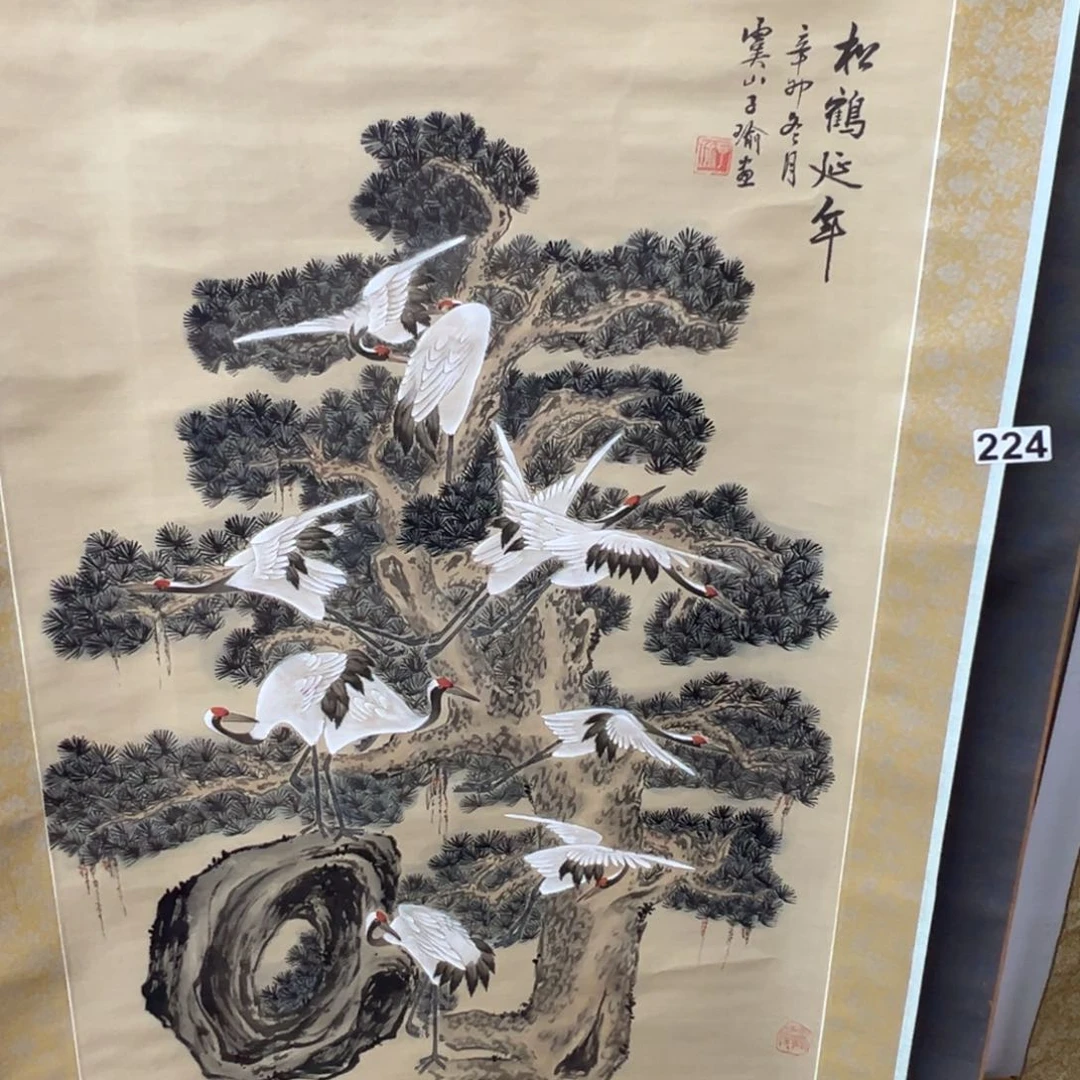 松鶴延年
辛卯冬月
虞山子瑜画
224